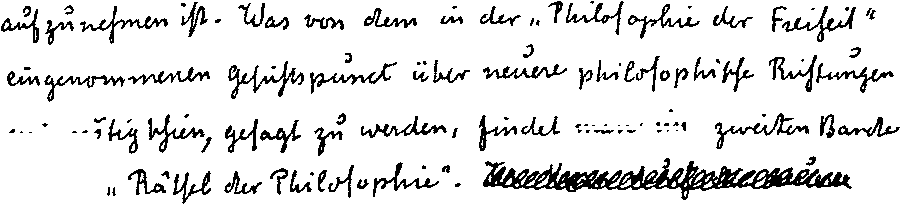 aufzunehmen ist. Was von dem in der „Philosophie der Freiheit“
eingenommenen Gesichtspunct über neuere philosophische Richtungen
nötig schien, gesagt zu werden, findet man im zweiten Bande
„Rätsel der Philosophie“.